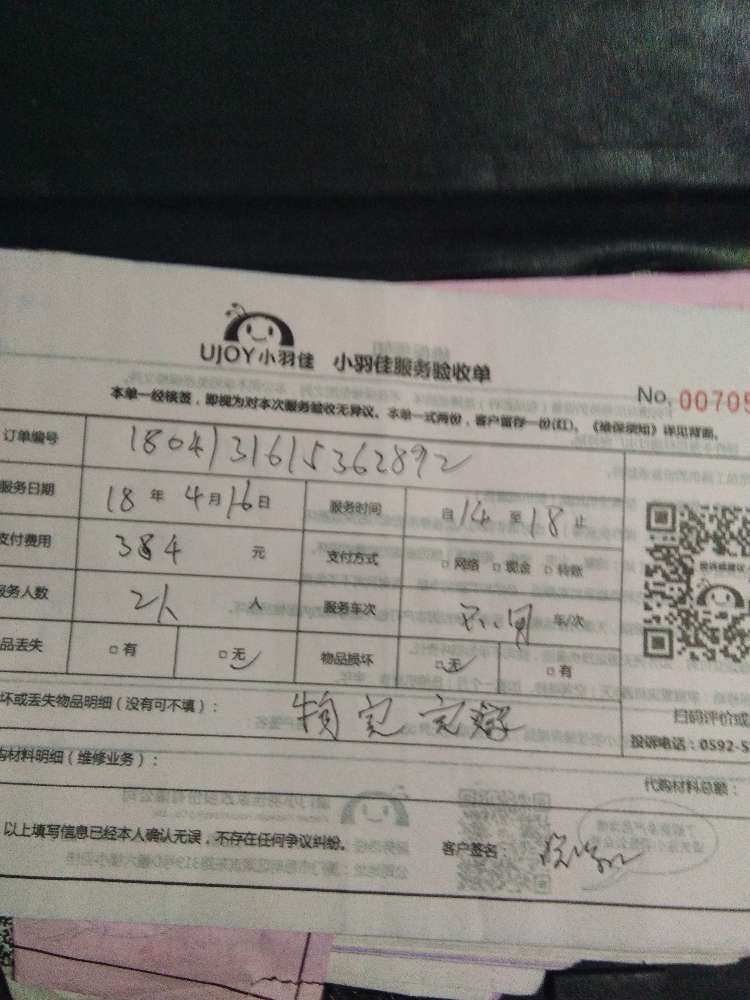 UJOY小羽佳 小羽佳服务验收单
No. 00705
本单一经核签，即视为对本次服务验收无异议。本单一式两份，客户留存一份(红)。《维保须知》详见背面。
订单编号 1804131615362892
服务日期 18 年 4 月 16 日 服务时间 自 14 至 18 止
支付费用 384 元 支付方式 □ 网络 □ 现金 □ 转账
服务人数 2人 人 服务车次 车/次
品丢失 □ 有 □ 无 物品损坏 □ 无 □ 有
坏或丢失物品明细（没有可不填）： 完
扫码评价或
投诉电话：0592-5
购材料明细（维修业务）：
代购材料总额：
以上填写信息已经本人确认无误，不存在任何争议纠纷。 客户签名：